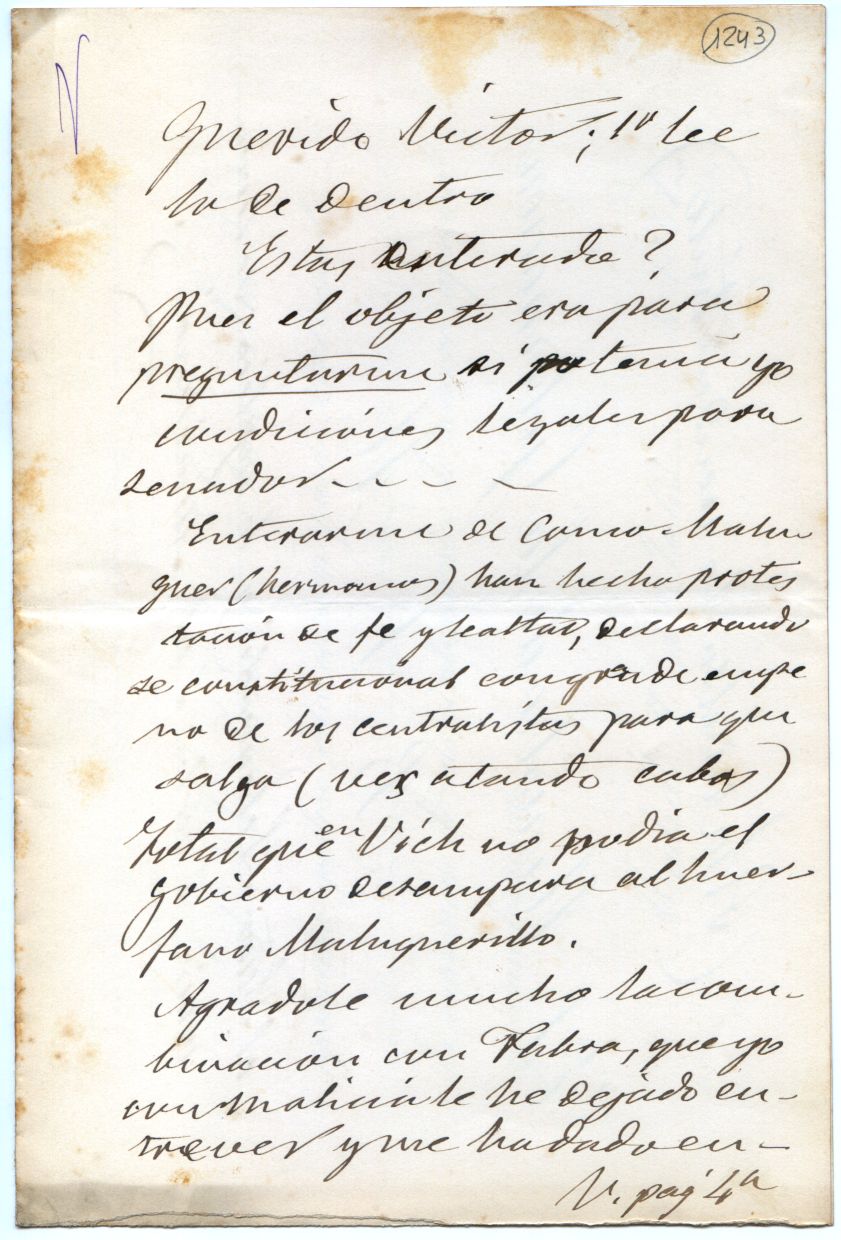 1243
Querido Victor; 1º lee
lo de dentro
Estas enterado?
Pues el objeto era para
preguntarme si tenia yo
condiciones legales para
senador - - - -
Enterarme de como Malu
quer (hermanos) han hecho protes
tación de fe y lealtad, declarando
se constitucional con grande empe
no de los centralistas para que
salga (ves atando cabos)
Total que en Vich no podia el
gobierno desampara al huer-
fano Maluquerillo.
Agradole mucho la com-
binación con Fabra, que yo
con malicia le he dejado en-
trever y me ha dado en-
V. pag 4ª